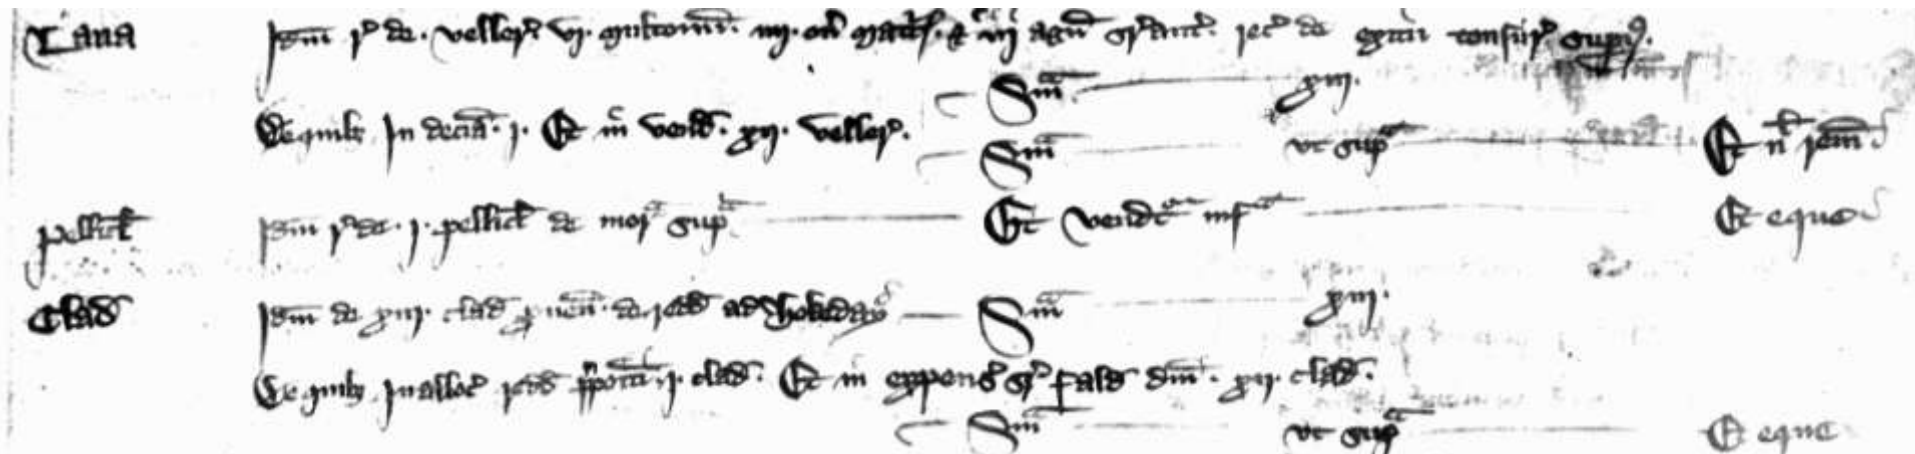 Lana Idm rͦ de . veller . vj . multonum . iiij . ou matric . & iij agn̄ rec de exitu tonsur sup
Sm̄a xiij .
De quibȝ In decīa . j . Et in vend . xij . veller .
Sm̄a vt supͣ Et n̄ rem̄
Pellicl Idm r de . j . pellicl de morͣ supͣ Et vendͣ infͣ Et eque
Clad Idm de xiij . clad de redd ad Hokeday Sm̄a xiij .
De quibȝ In alloc redd j . clad . Et in expens fald dm̄ . xij . clad .
Sm̄a vt supͣ Et eque